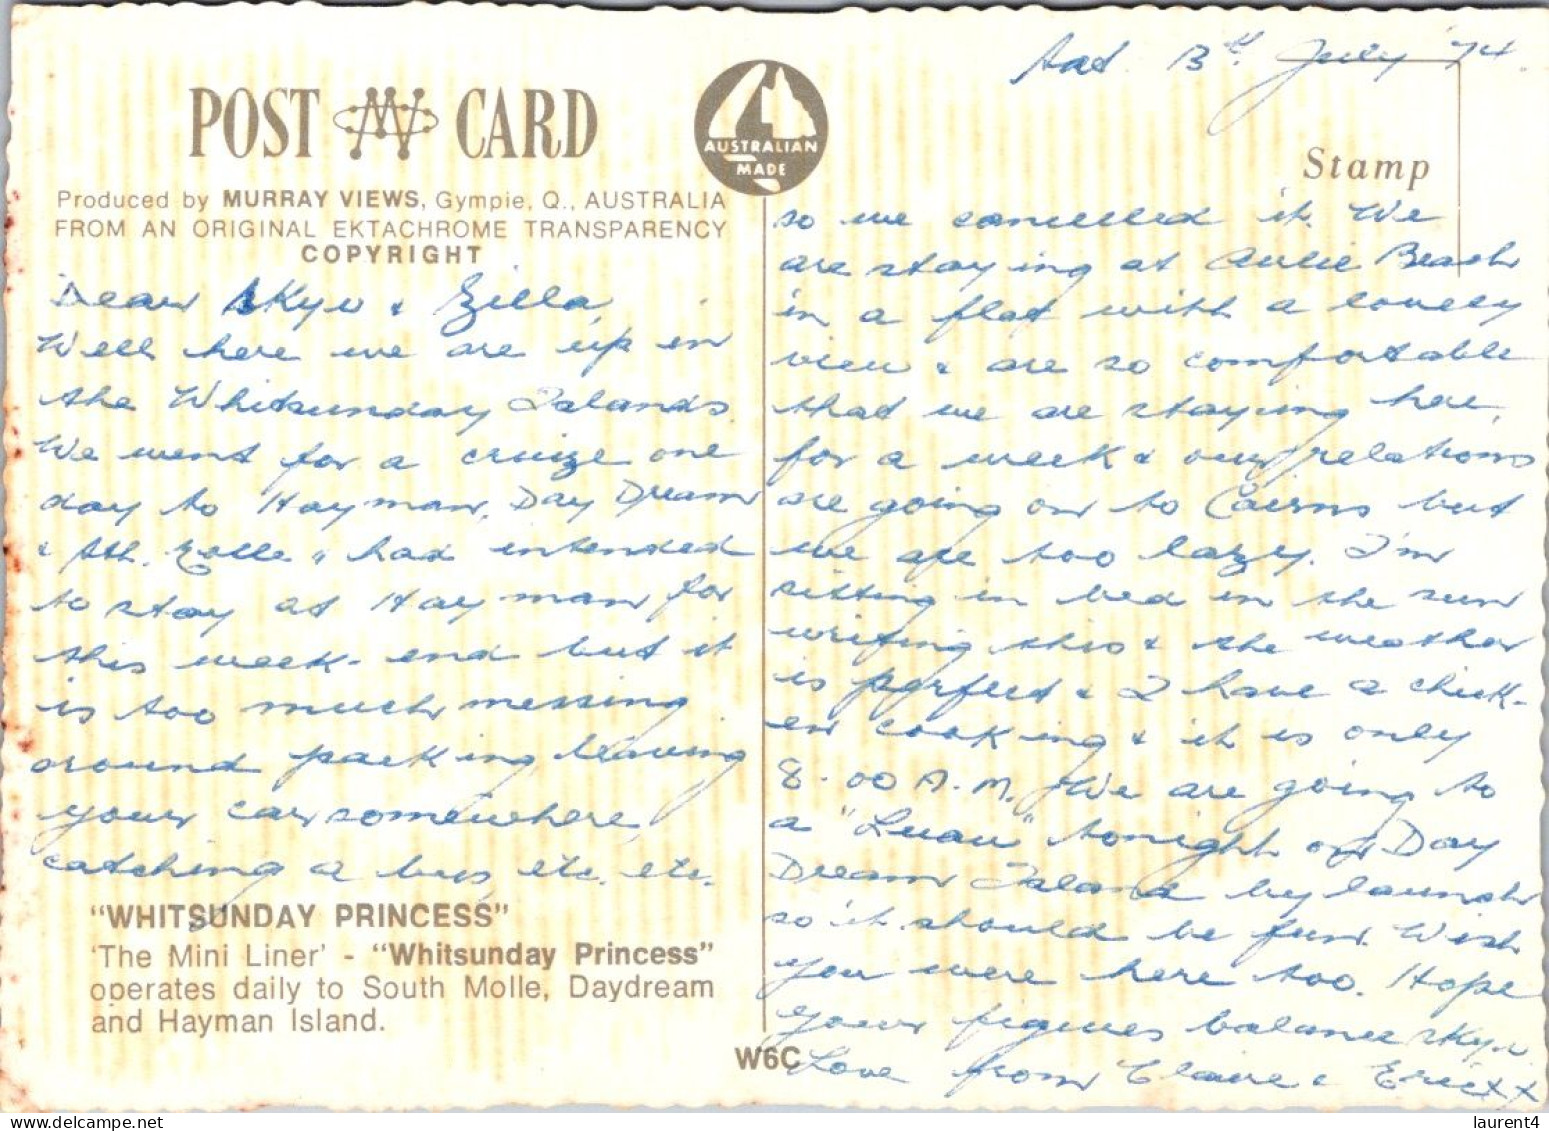 Sat. 13th July '74.
POST CARD
AUSTRALIAN
MADE
Stamp
Produced by MURRAY VIEWS, Gympie, Q., AUSTRALIA
FROM AN ORIGINAL EKTACHROME TRANSPARENCY
COPYRIGHT
Dear Skyv & Zilla,
Well here we are up in
the Whitsunday Islands.
We went for a cruize one
day to Hayman, Day Dream
& Sth. Molle & had intended
to stay at Hayman for
this week-end but it
is too much messing
around parking, leaving
your car somewhere,
catching a bus, etc. etc.
"WHITSUNDAY PRINCESS"
'The Mini Liner' - "Whitsunday Princess"
operates daily to South Molle, Daydream
and Hayman Island.
W6C
so we cancelled it. We
are staying at Airlie Beach
in a flat with a lovely
view & are so comfortable
that we are staying here,
for a week & our relations
are going on to Cairns but
we are too lazy. I'm
sitting in bed in the sun
writing this & the weather
is perfect & I have a chick-
en cooking & it is only
8.00 A.M. We are going to
a "Luau" tonight on Day
Dream Island by launch
so it should be fun. Wish
you were here too. Hope
your figures balance Skyv.
Love from Claire & Eric xx
laurent4